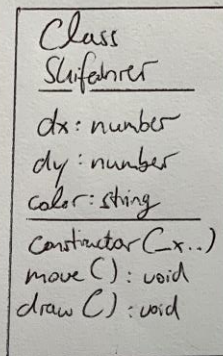 Class
Skifahrer
dx: number
dy: number
color: string
constructor(_x..)
move(): void
draw(): void